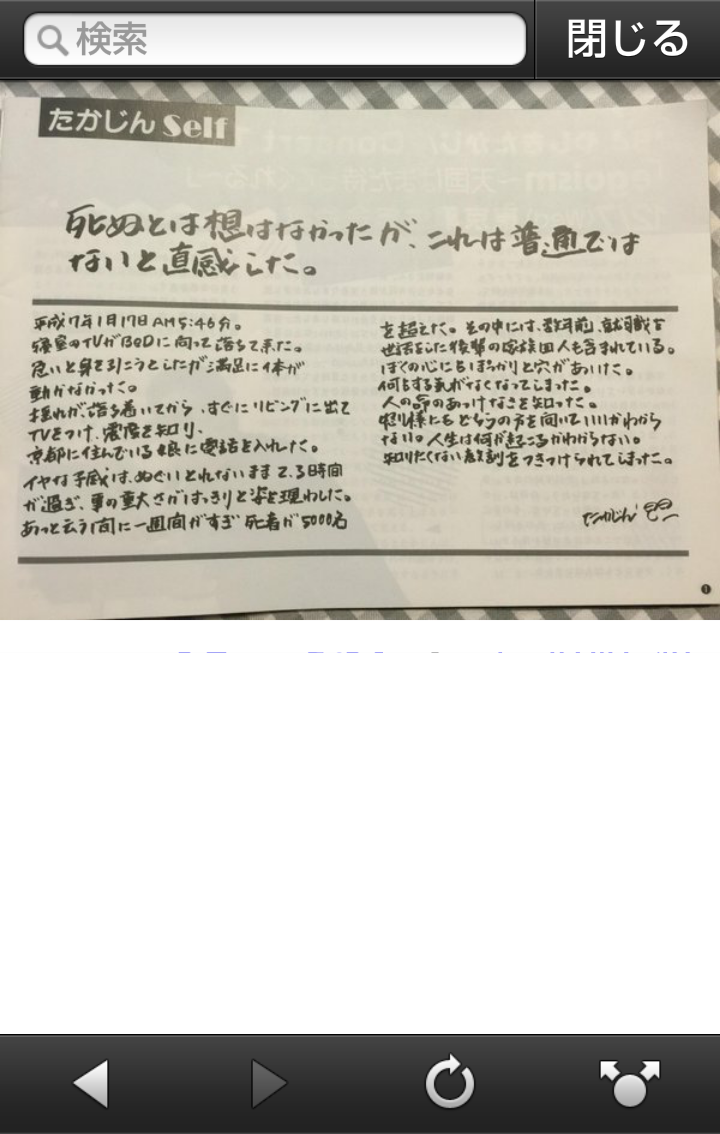 検索
閉じる
たかじん Self
死ぬとは想はなかったが、これは普通では
ないと直感した。
平成7年1月17日AM5:46分。
寝室のTVがBeDに向って落ちて来た。
危いと身を引こうとしたが満足に体が
動かなかった。
揺れが落ち着いてから、すぐにリビングに出て
TVをつけ、震度を知り、
京都に住んでいる娘に電話を入れた。
イヤな予感は、ぬぐいとれないまま2、3時間
が過ぎ、事の重大さがはっきりと姿を現わした。
あっと云う間に一週間がすぎ 死者が5000名
を超えた。その中には、数年前、就職を
世話をした後輩の家族四人も含まれている。
ぼくの心にもぽっかりと穴があいた。
何もする気がなくなってしまった。
人の命のあっけなさを知った。
怒り様にもどちらの方を向いていいかわから
ない。人生は何が起こるかわからない。
知りたくない教訓をつきつけられてしまった。
たかじん
1